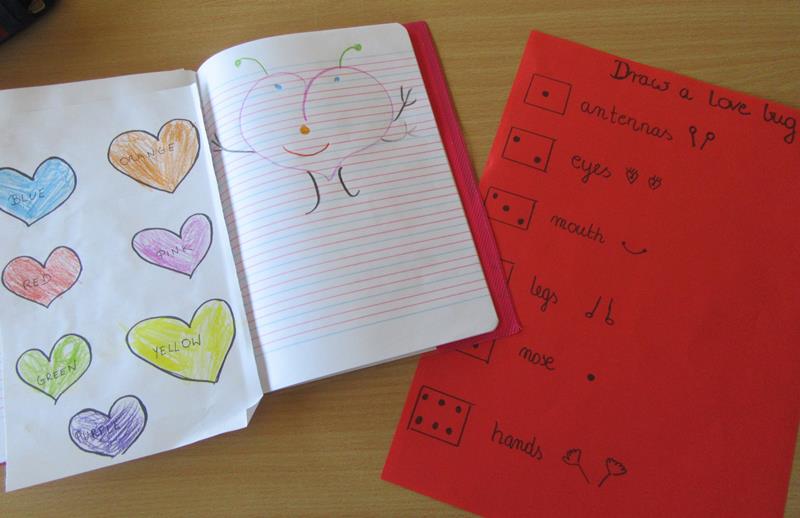 BLUE
ORANGE
RED
PINK
GREEN
YELLOW
PURPLE
Draw a love bug
antennas
eyes
mouth
legs
nose
hands